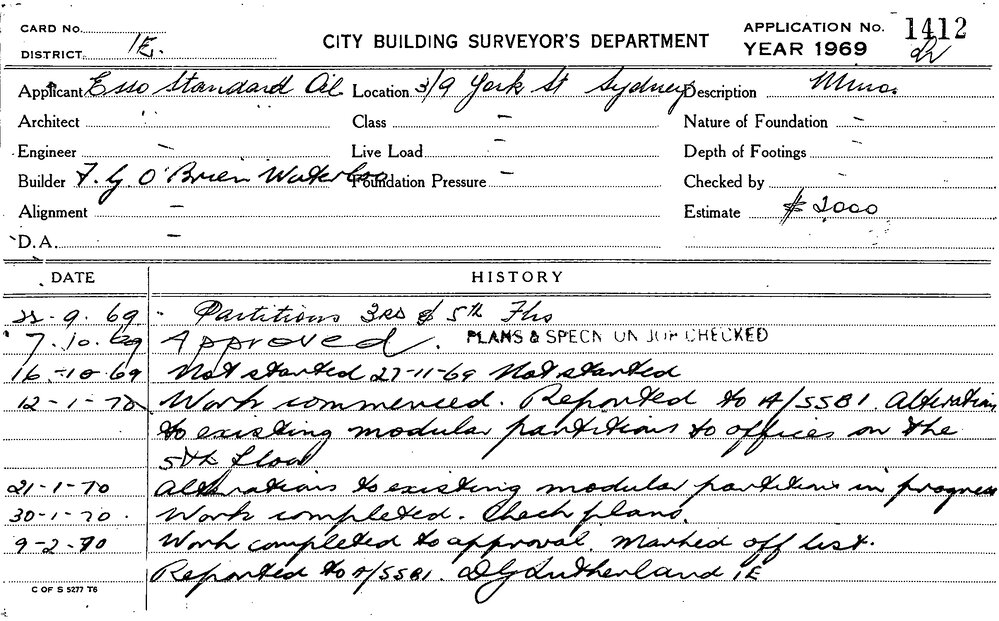 CARD No.
DISTRICT. 1E.
CITY BUILDING SURVEYOR'S DEPARTMENT
APPLICATION No. 1412
YEAR 1969
Applicant Esso Standard Oil Location 3/9 York St Sydney Description Minor
Architect " Class – Nature of Foundation –
Engineer – Live Load – Depth of Footings –
Builder F. G. O'Brien Waterloo Foundation Pressure – Checked by –
Alignment – Estimate $2000
D.A. –
DATE HISTORY
22-9-69 Partitions 3RD & 5th Flrs
7.10.69 Approved. PLANS & SPECN ON JOB CHECKED
16-10-69 Not started 27-11-69 Not started
12-1-70 Work commenced. Reported to A/SSB1. Alterations
to existing modular partitions to offices on the
5th floor
21-1-70 Alterations to existing modular partitions in progress
30-1-70. Work completed. Check plans.
9-2-70 Work completed to approval. Marked off list.
Reported to A/SSB1. DG Sutherland 1E
C OF S 5277 T6